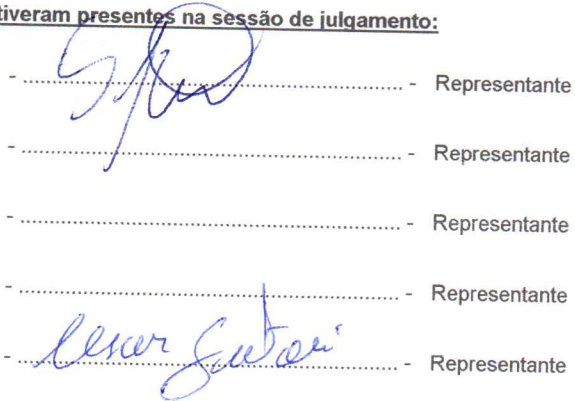 tiveram presentes na sessão de julgamento:
- ........................................ - Representante
- ........................................ - Representante
- ........................................ - Representante
- ........................................ - Representante
- Cesar ........................................ - Representante